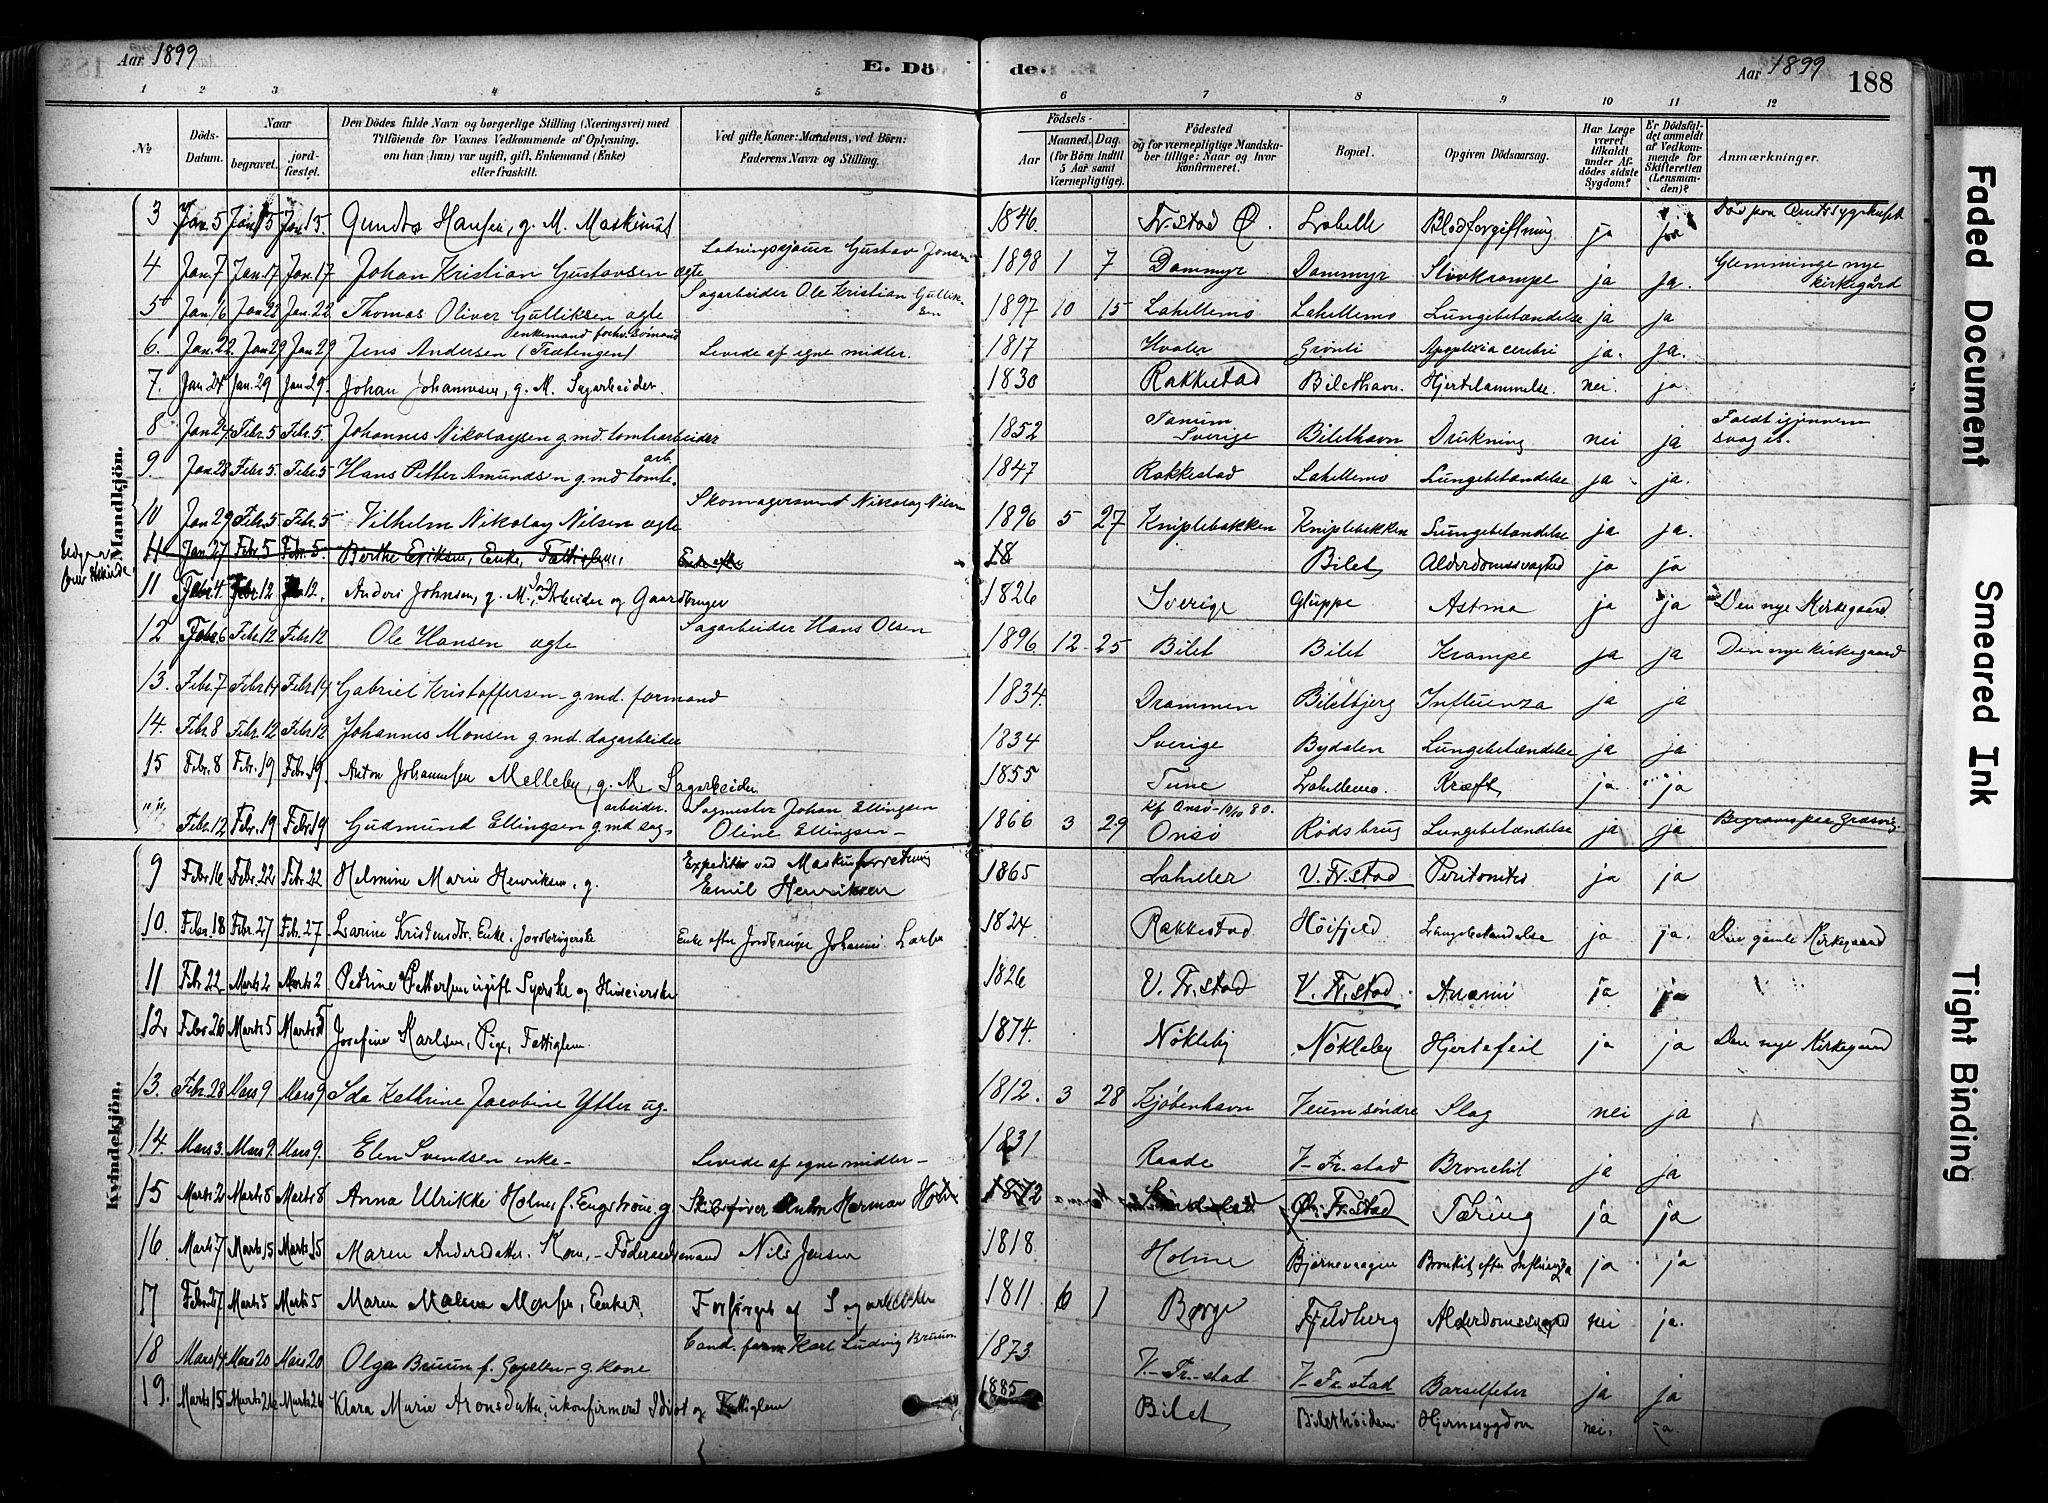 Aar 1899
E. Döde.
Aar 1899
188
1 2 3 4 5 6 7 8 9 10 11 12
№
Döds-Datum.
Naar
begravet.
jordfæstet.
Den Dödes fulde Navn og borgerlige Stilling (Næringsvei) med
Tilföiende for Voxnes Vedkommende af Oplysning,
om han (hun) var ugift, gift, Enkemand (Enke)
eller fraskilt.
Ved gifte Koner: Mandens, ved Børn:
Faderens Navn og Stilling.
Födsels-
Aar
Maaned, Dag.
(for Börn indtil
5 Aar samt
Værnepligtige).
Födested
og for værnepligtige Mandskaber tillige: Naar og hvor
konfirmeret.
Bopæl.
Opgiven Dödsaarsag.
Har Læge
været
tilkaldt
under Afdödes sidste
Sygdom?
Er Dödsfaldet anmeldt
af Vedkommende for
Skifteretten
(Lensmanden)?
Anmærkninger.
Mandkjön.
3 Jan. 5 Jan. 15 Jan. 15. Hansen, g. M. Maskinist 1846. Fr.stad Ø. Labelle Blodforgiftning ja ja
4 Jan. 7 Jan. 17 Jan. 17 Johan Kristian Gustavsen ægte Gustav Jensen 1898 1 7 Dammyr Dammyr ja ja. Glemminge nye kirkegård
5 Jan. 16 Jan. 22 Jan. 22 Thomas Oliver Gulliksen ægte Sagarbeider Ole Kristian Gulliksen 1897 10 15 Lahellemo Lahellemo Lungebetændelse ja ja
6. Jan. 22. Jan 29 Jan 29 Jens Andersen (Trætingen) enkemand forhv. sømand Levede af egne midler. 1817 Hvaler Grønli Apoplexia cerebri ja. ja.
7. Jan. 24 Jan. 29 Jan 29. Johan Johannesen, g. M. Sagarbeider. 1830 Rakkestad Bilethavn. Hjertelammelse. nei. ja.
8 Jan 24. Febr. 5 Febr. 5. Johannes Nikolaysen g. md. tomtearbeider 1852 Tanum Sverige Bilethavn Drukning nei ja Faldt igjennem svag is.
9. Jan 28 Febr. 5. Febr. 5 Hans Petter Amundsen g. md tomte. arb. 1847 Rakkestad Lahellemo Lungebetændelse ja ja.
10 Jan 29 Febr. 5 Febr. 5 Vilhelm Nikolay Nilsen ægte Skomagersvend Nikolay Nilsen 1896 5 27 Kniplebakken Kniplebakken Lungebetændelse ja ja.
Jan. 27 Febr. 5 Febr. 5. Berthe Eriksen, Enke, Fattiglem, Enke efter 18 Bilet Alderdomssvaghed ja ja
11 Febr. 4 Febr. 12 12. Anders Johnsen, g. M., Jord Arbeider og Gaardbruger 1826 Sverige Gluppe Astma ja ja Den nye Kirkegaard
12 Febr. 6 Febr. 12 Febr. 12 Ole Hansen ægte Sagarbeider Hans Olsen 1896. 12 25 Bilet Bilet Krampe ja ja Den nye kirkegaard
13. Febr. 7 Febr. 14 Febr. 14 Gabriel Kristoffersen - g. md. formand 1834. Drammen Biletbjerg Influenza ja ja
14. Febr. 8 Febr. 12 Febr. 12 Johannes Monsen g. md. dagarbeider 1834 Sverige Bydalen Lungebetændelse ja ja
15 Febr. 8 Febr. 19 Febr. 19. Anton Johannesen Melleby, g. M. Sagarbeider 1855 Tune Lahellemo. Kræft ja ja
Febr. 12 Febr. 19 Febr. 19 Gudmund Ellingsen g. md sag- arbeider. Sagmester Johan Ellingsen Oline Ellingsen - 1866 3 29 Kf. Onsö 10/10 80. Onsö Rødsbrug Lungebetændelse ja ja
Kvindekjön.
9 Febr. 16 Febr. 22 Febr. 22 Helmine Marie Henriksen, g. Expeditør ved Maskinforretning Emil Henriksen 1865 Laheller V. Fr.stad Peritonitis ja ja
10. Febr. 18 Febr. 27 Febr. 27 Larine Kristensdtr. Enke. Jordbrugerske Enke efter Jordbruger 1824 Rakkestad Høifjeld Lungebetændelse ja ja. Den gamle Kirkegaard
11 Febr 22 Marts 2 Marts 2 Petrine Pettersen ugift Syerske og Huseierske 1826 V. Fr.stad V. Fr.stad Anæmi ja ja
12 Febr 26 Marts 5 Marts 5 Josefine Karlsen, Pige, Fattiglem. 1874. Nökleby Nökleby Hjertefeil ja ja Den nye Kirkegaard
13. Febr. 28 Mars 9 Mars 9 Ida Kathrine Jacobine Ytter ug. 1812. 3 28 Kjøbenhavn Veum søndre Slag nei ja
14. Mars 3. Mars 9. Mars 9. Elen Svendsen enke- Levede af egne midler- 1831 Raade V- Fr. stad Bronchit ja ja
15 Marts 2 Marts 8 Marts 8 Anna Ulrikke Holm f. Engstrøm. g. Skibsfører Anton Herman Holm 1872 Ø. Fr.stad Tæring ja ja
16. Marts 7 Marts 15 Marts 15 Maren Andersdatter. Kone, - Föderaadsmand Nils Jensen 1818. Holme Bjørnevaagen Bronkit efter Influenza ja ja
17 Febr. 27 Marts 5 Marts 5 Maren Monsen, Enke. Forsørget af Sagarbeider 1811 6 1 Borge Fjeldberg Alderdomssvaghed nei ja.
18 Mars 14 Mars 20 Mars 20 Olga Bruun f. - g. kone Cand. farm Karl Ludvig Bruun 1873 V.- Fr.- stad V- Fr. stad Barselfeber ja ja
19. Marts 15 Marts 26 Marts 26 Klara Marie Aronsdatter, ukonfirmeret Idiot og Fattiglem 1885 Bilet Bilethöiden Hjernesygdom nei. ja.
Faded Document
Smeared Ink
Tight Binding